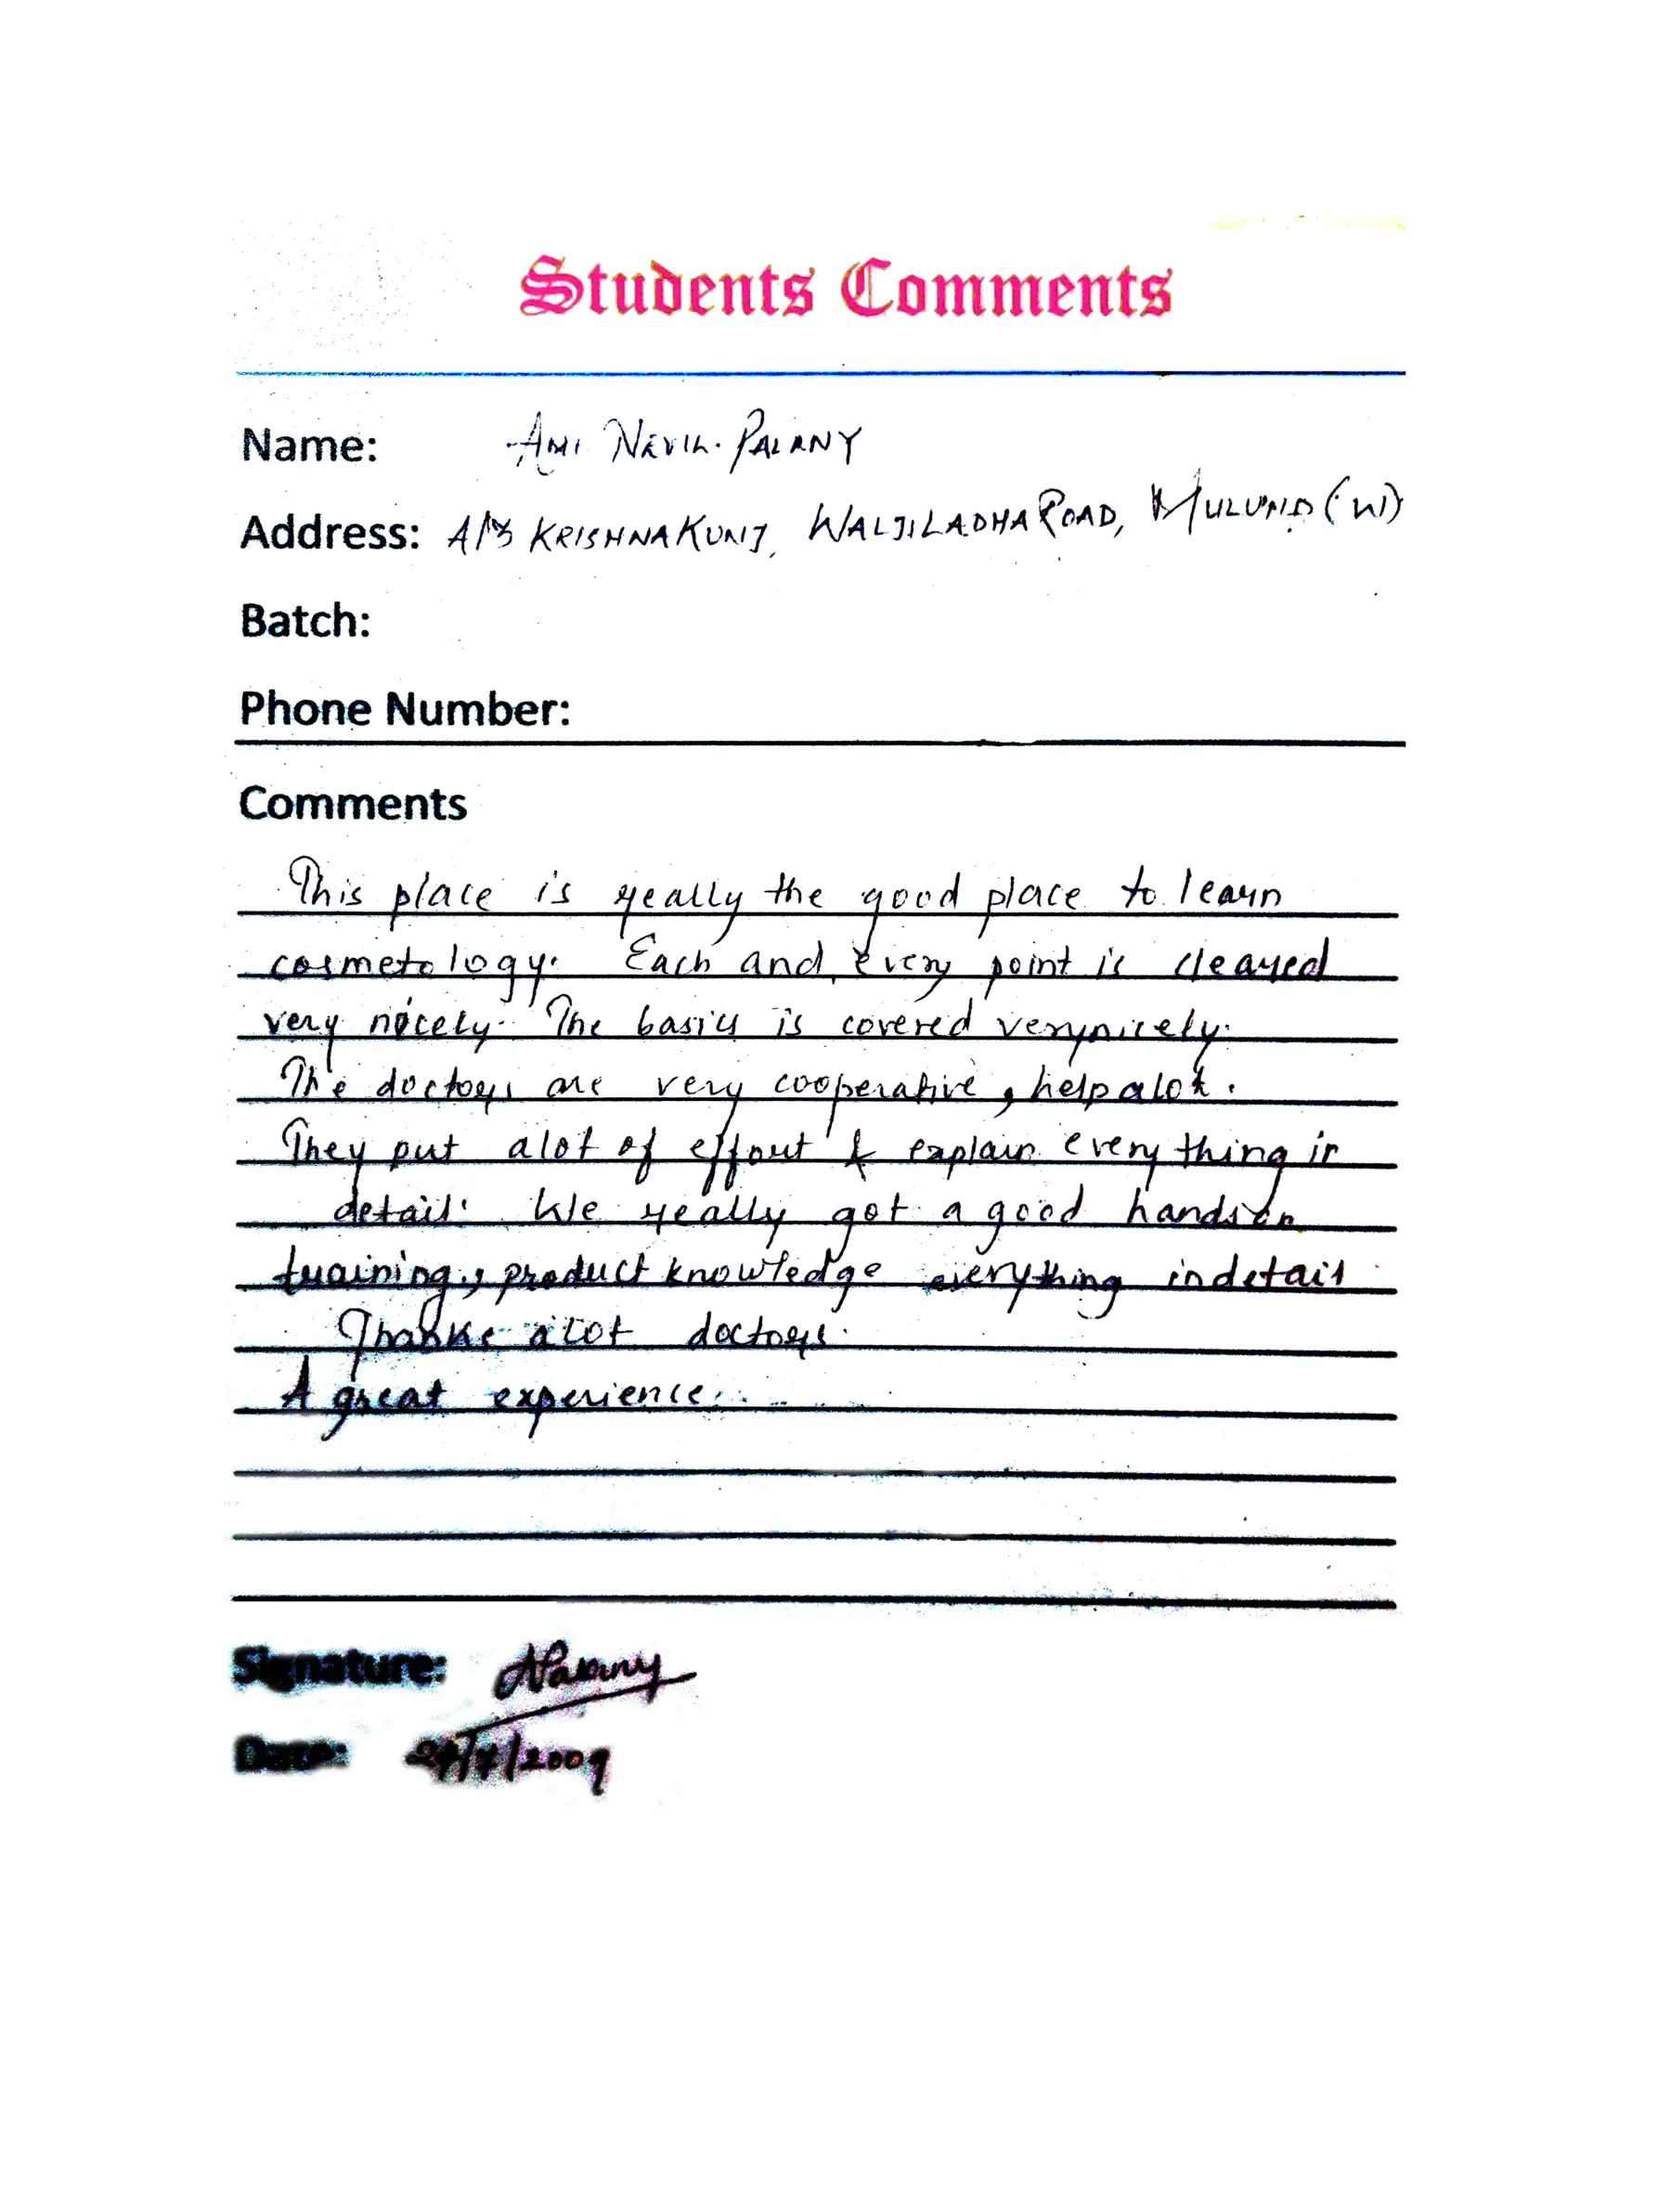 Students Comments
Name: Ami Nevil. Palany
Address: A/3 KRISHNAKUNJ, WALJILADHA ROAD, MULUND (W)
Batch:
Phone Number:
Comments
This place is really the good place to learn
cosmetology. Each and every point is cleared
very nicely. The basics is covered verynicely.
The doctors are very cooperative, help alot.
They put alot of effort & explain every thing in
detail. We really got a good handson
training, product knowledge everything indetail
Thanks alot doctors.
A great experience.
Signature: APalany
Date: /2009